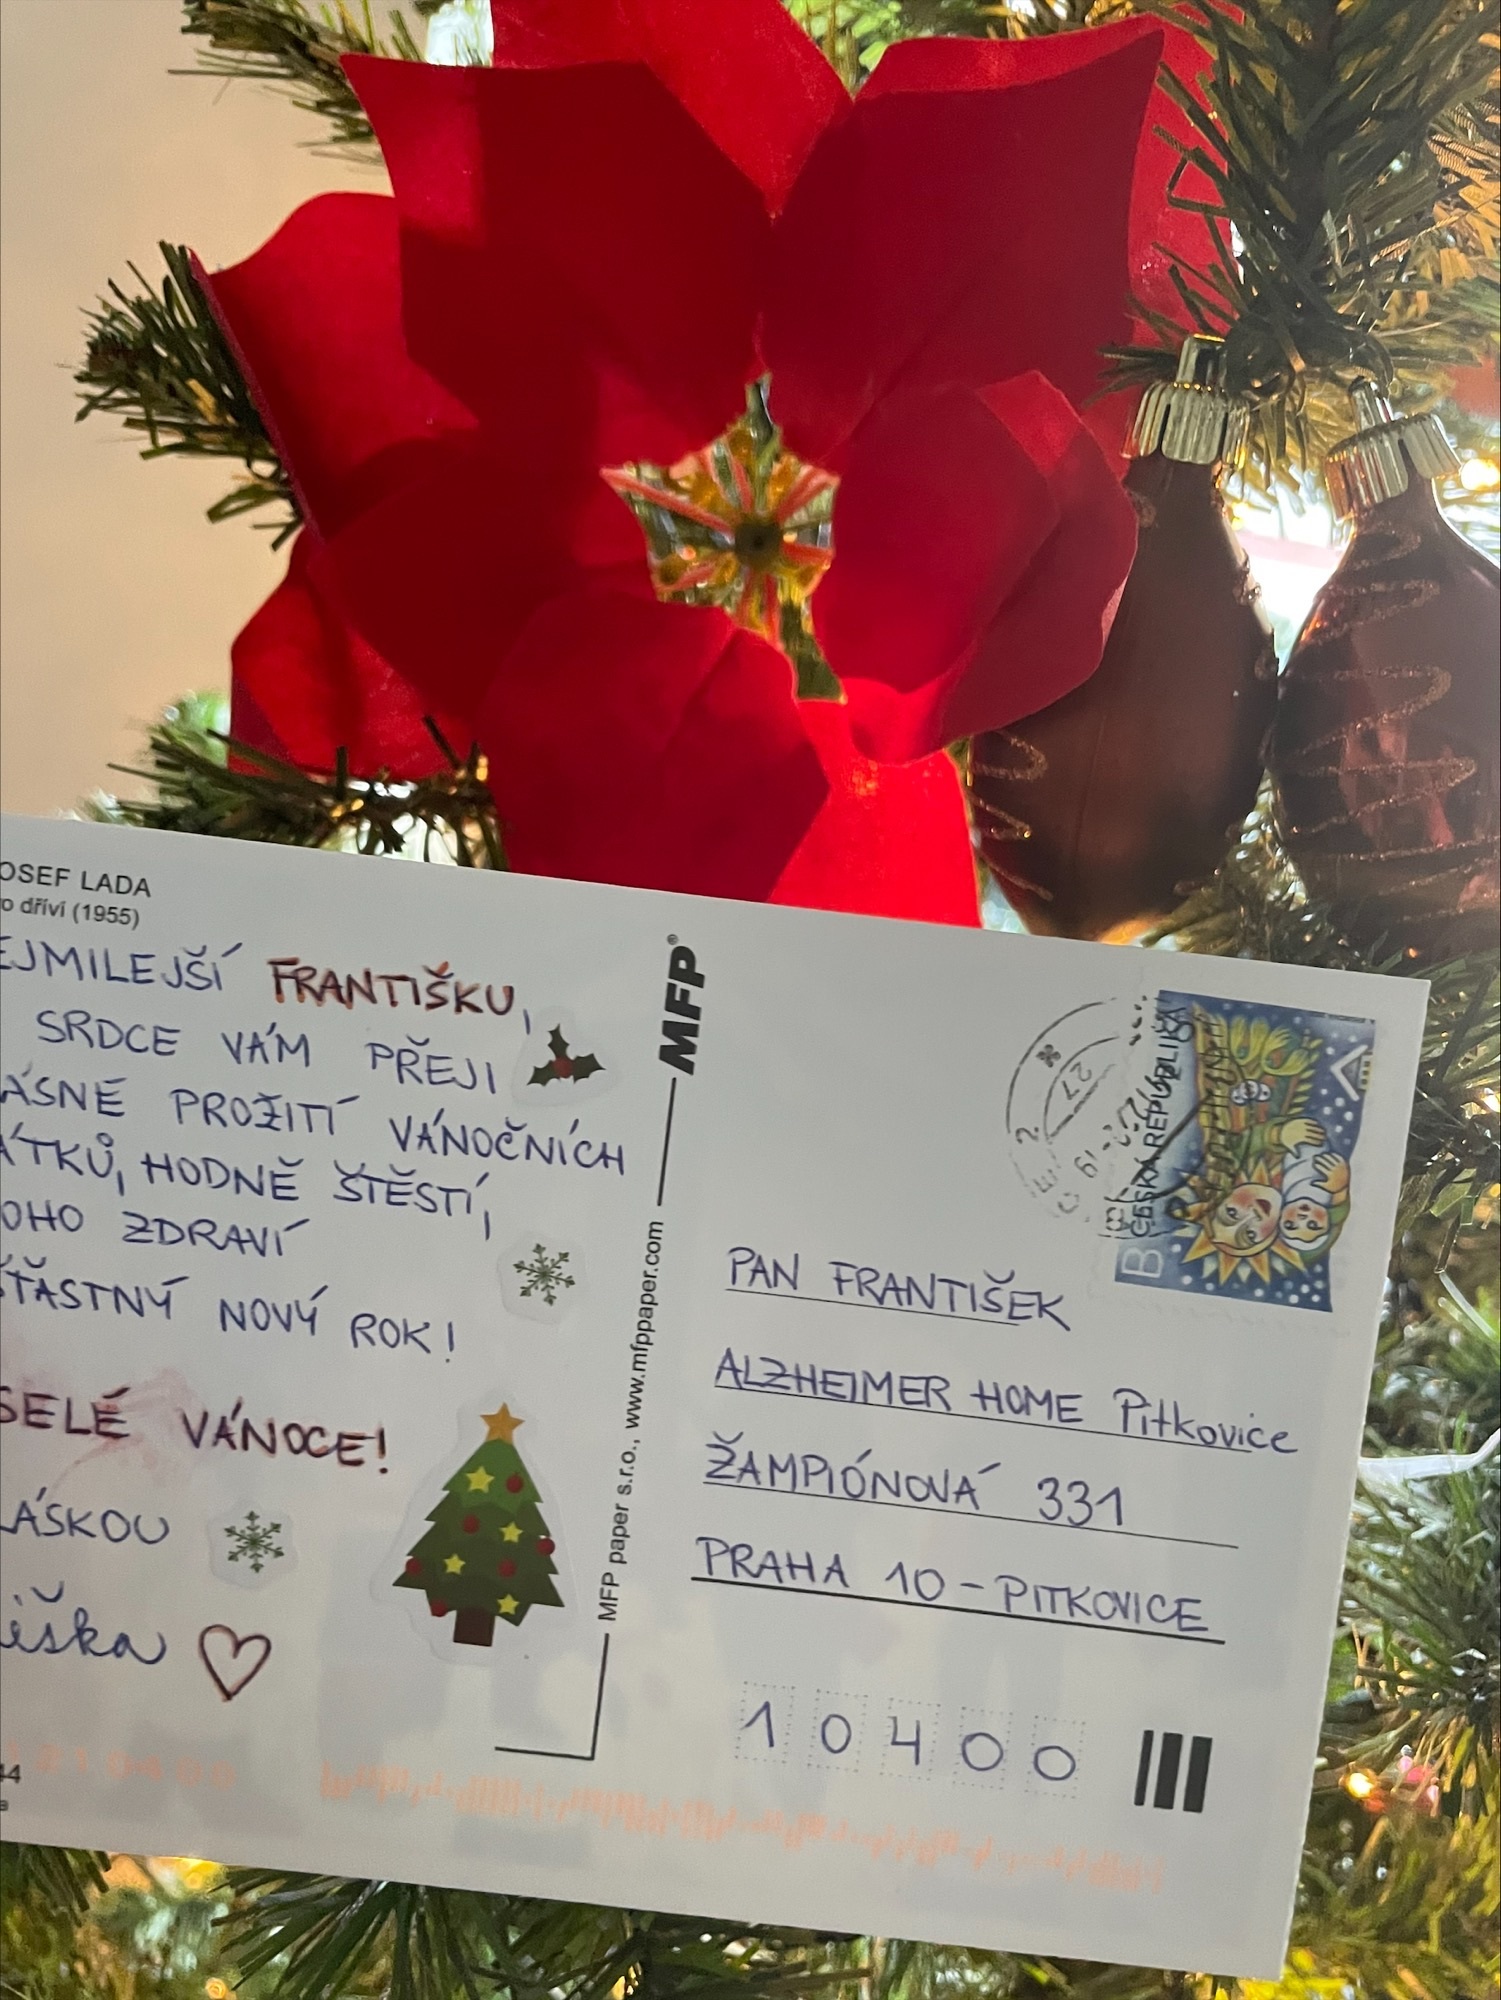 OSEF LADA
o dříví (1955)
EJMILEJŠÍ FRANTIŠKU,
SRDCE VÁM PŘEJI
ÁSNÉ PROŽITÍ VÁNOČNÍCH
ÁTKŮ, HODNĚ ŠTĚSTÍ,
OHO ZDRAVÍ
ŠŤASTNÝ NOVÝ ROK!
SELÉ VÁNOCE!
LÁSKOU
iška
44
MFP®
MFP paper s.r.o., www.mfppaper.com
ČESKÁ REPUBLIKA
B
27
PAN FRANTIŠEK
ALZHEIMER HOME Pitkovice
ŽAMPIÓNOVÁ 331
PRAHA 10 - PITKOVICE
1 0 4 0 0